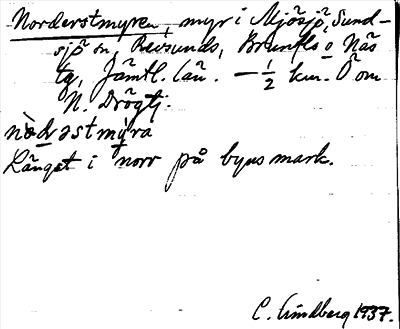 Norderstmyren, myr i Mjösjö, Sund-
sjö sn, Revsunds, Brunflo o Näs
tg, Jämtl. län. — 1/2 km. Ö om
N. Drögtj.
Längst i norr på byns mark.
C. Lindberg 1937.